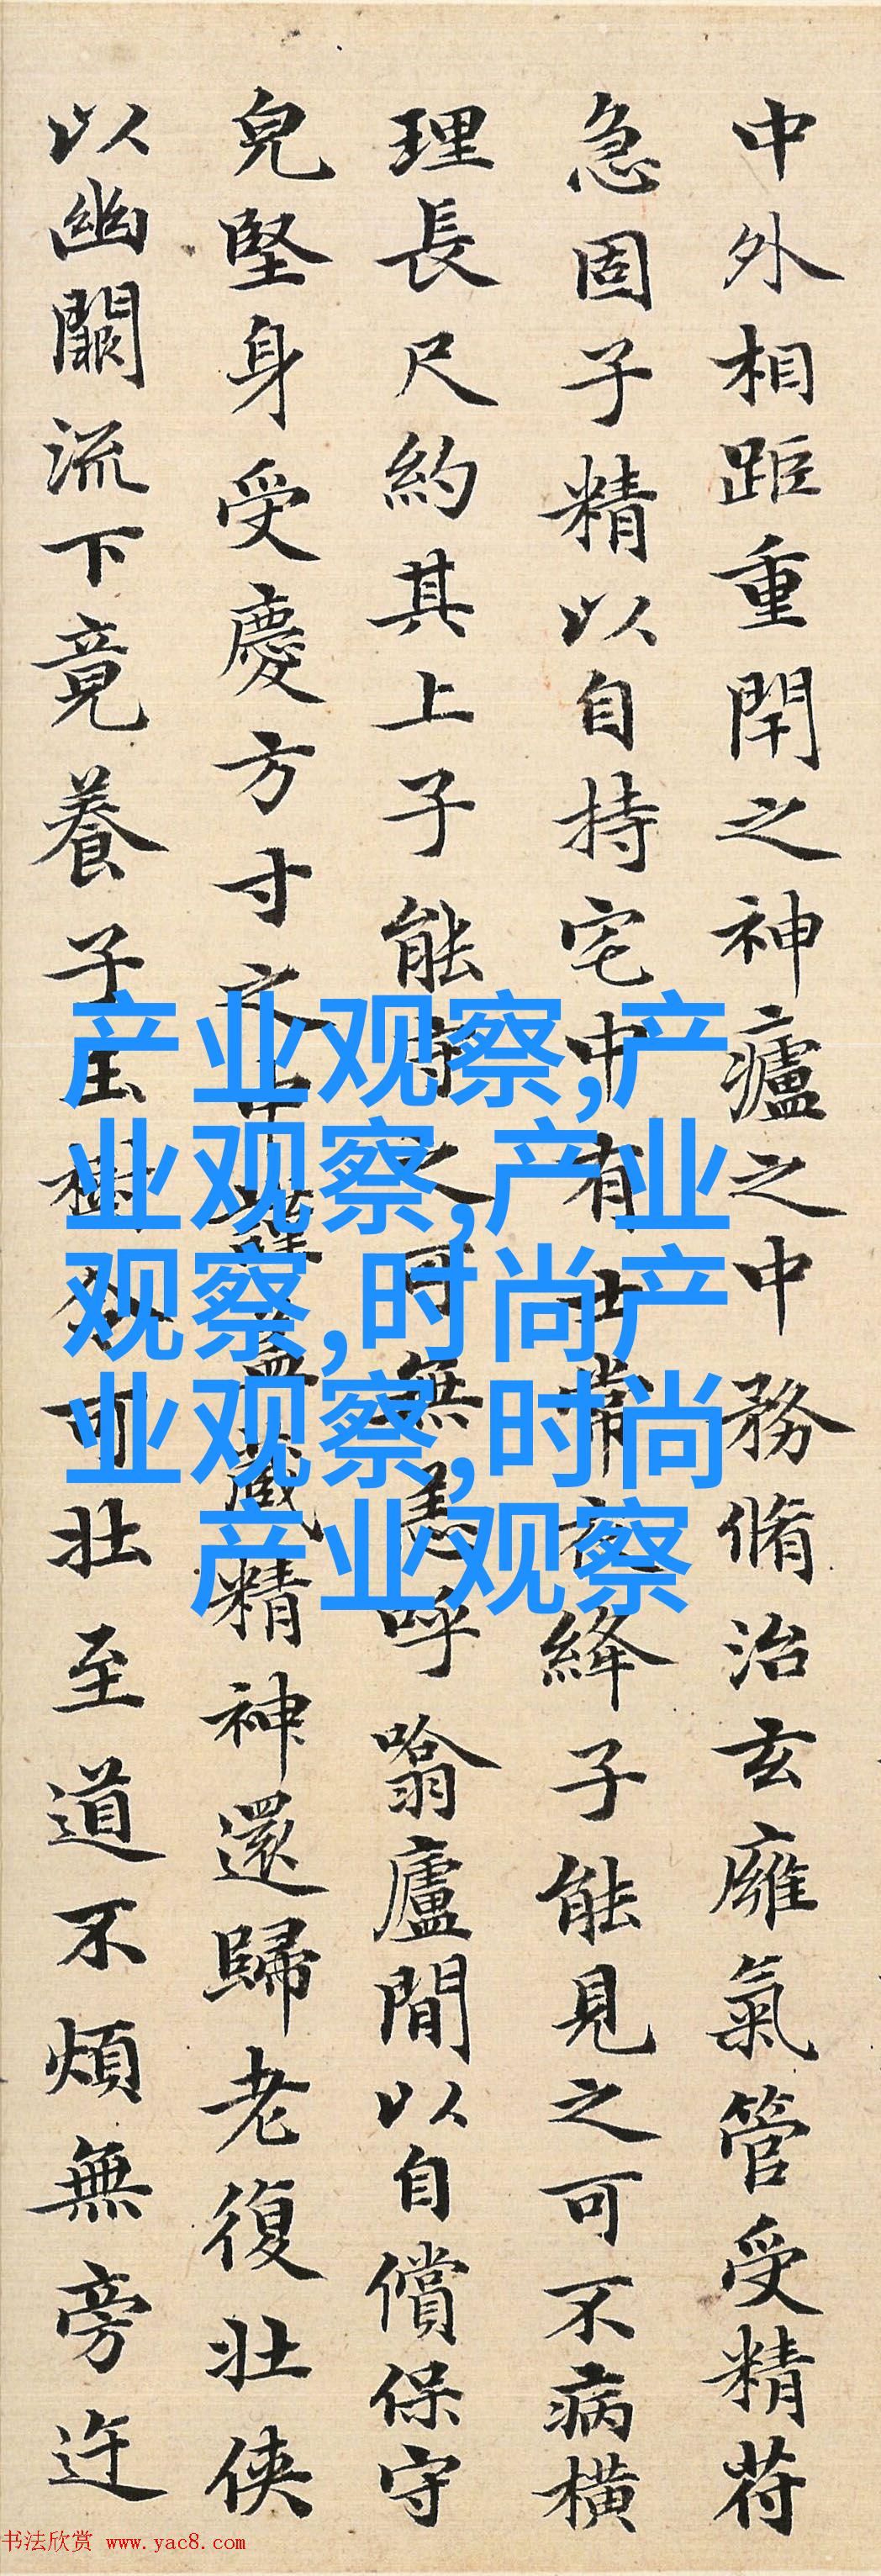 中外相距重閇之神廬之中務脩治玄廱氣管受精苻
急固子精以自持宅中有士常衣絳子能見之可不病橫
理長尺約其上子能守之可無恙呼噏廬間以自償保守
皃堅身受慶方寸之中謹蓋藏精神還歸老復壯俠
以幽闕流下竟養子玉樹令可壯至道不煩無旁迕
产业观察,产
业观察,产业
观察,时尚产
业观察,时尚
产业观察
书法欣赏 www.yac8.com